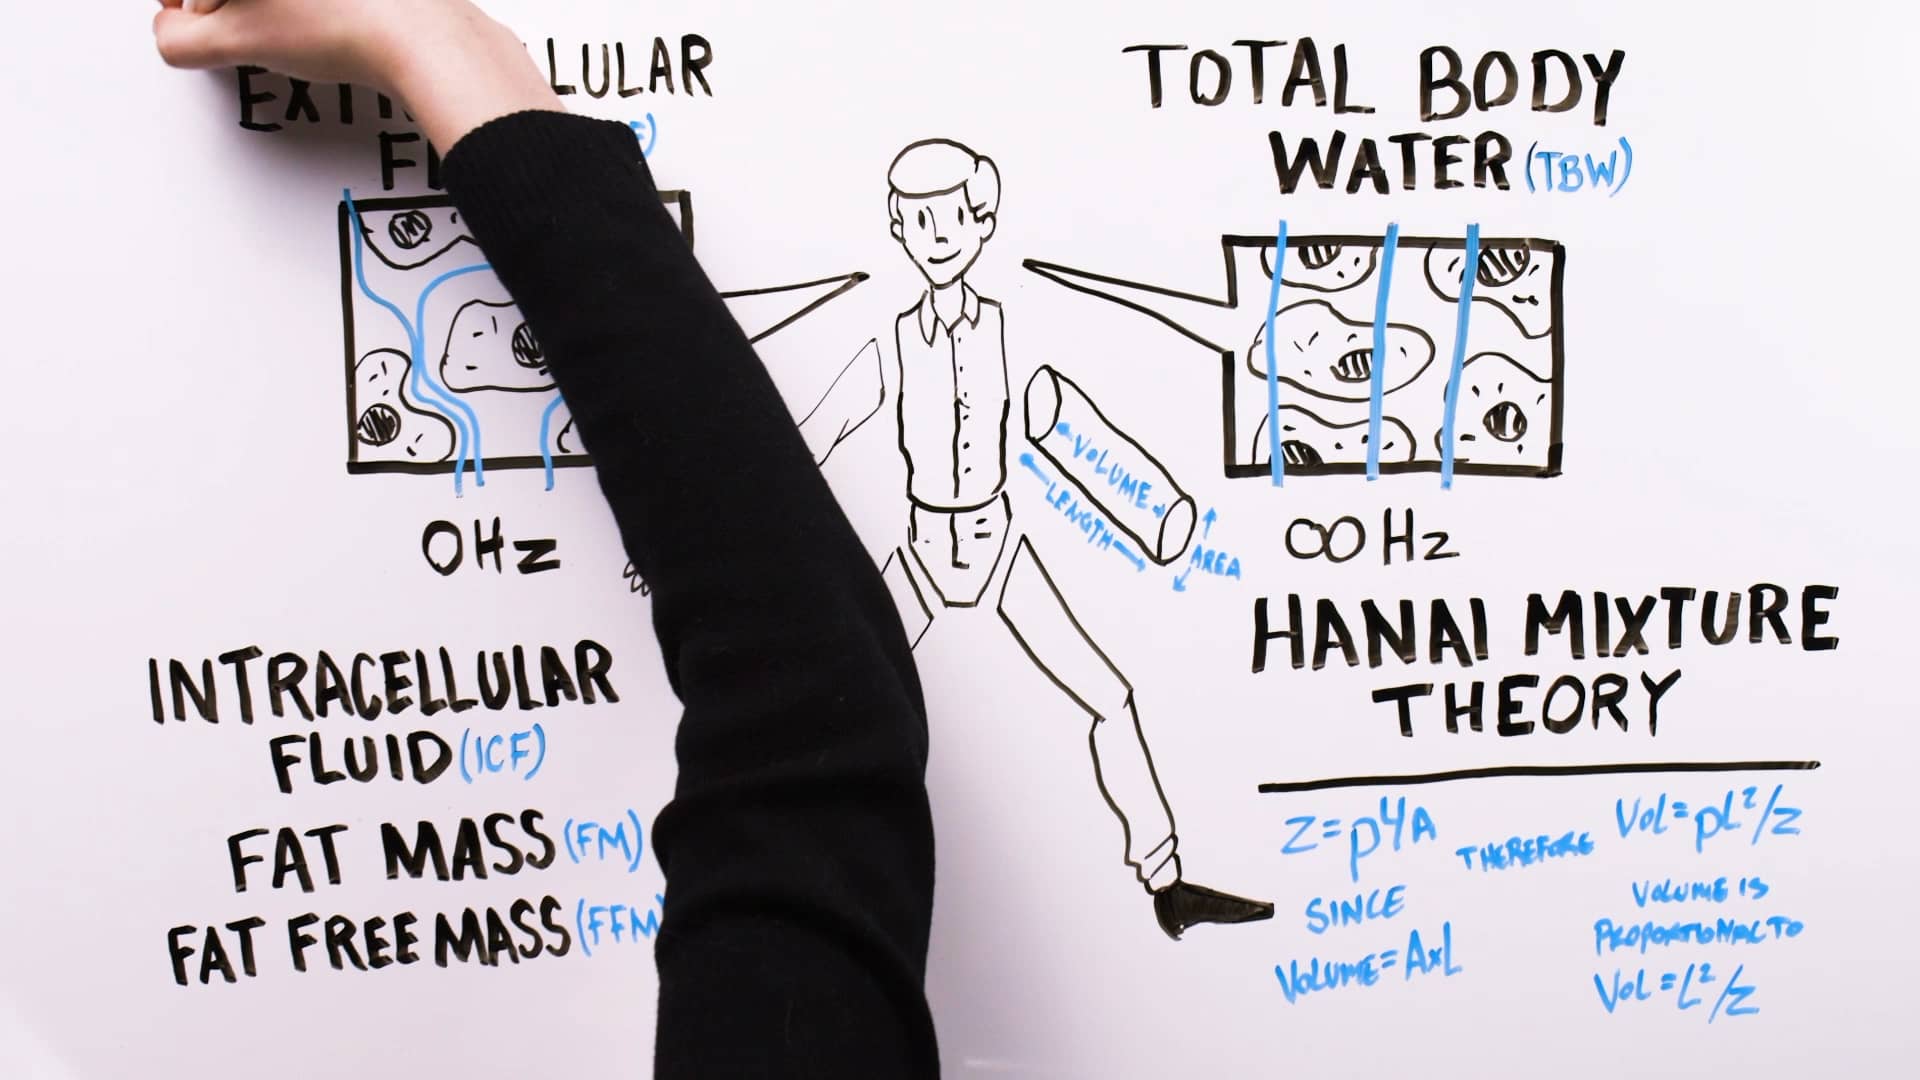 LULAR
TOTAL BODY
WATER (TBW)
VOLUME
LENGTH
AREA
0Hz
∞ Hz
HANAI MIXTURE
THEORY
INTRACELLULAR
FLUID (ICF)
FAT MASS (FM)
FAT FREE MASS (FFM)
Z=pL/A
THEREFORE
VOL=pL²/Z
SINCE
VOLUME=AxL
VOLUME IS
PROPORTIONAL TO
VOL=L²/Z